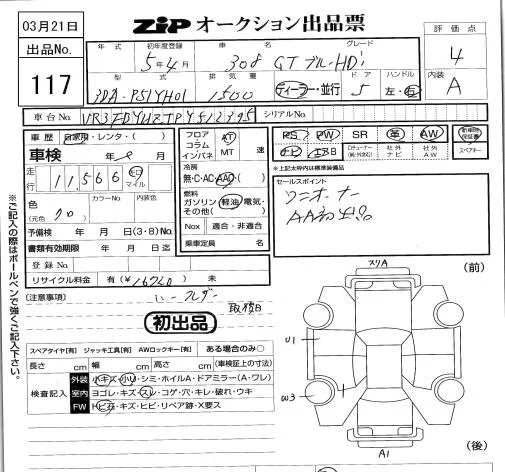 03月21日
ZiP オークション出品票
評価点
4
内装
A
出品No.
117
年式
初年度登録
車名
グレード
5年4月
308
GT ブルーHDi
型式
排気量
ドア
ハンドル
3DA-P51YH01
1500
ディーラー・並行
5
左・右
車台No.
シリアルNo.
車歴
自家用・レンタ・( )
車検
年 月
走行
11,566
キロ
マイル
色
(元色)
クロ
カラーNo.
内装色
予備検 年 月 日(3・8)No.
書類有効期限 年 月 日迄
登録No.
リサイクル料金 有(¥ ) 未
フロア
コラム
インパネ
AT
MT
速
冷房
無・C・AC・AAC( )
燃料
ガソリン・軽油・電気・
その他( )
Nox 適合・非適合
乗車定員 名
PS PW SR 革 AW
新車時保証書
ナビ エアB
社外ナビ
社外AW
スペアキー
*上記太枠内は標準装備品
セールスポイント
ワンオーナー
AA初出品
(注意事項)
取説
初出品
スペアタイヤ[有] ジャッキ工具[有] AWロックキー[有] ある場合のみ○
長さ cm 幅 cm 高さ cm (車検証上の寸法)
検査記入
外装 小キズ・小凹・シミ・ホイルA・ドアミラー(A・ワレ)
室内 ヨゴレ・キズ・スレ・コゲ・穴・キレ・破れ・ウキ
FW トビ石・キズ・ヒビ・リペア跡・X要ス
※ご記入の際はボールペンで強くご記入下さい。
スリA
(前)
U1
W3
A1
(後)